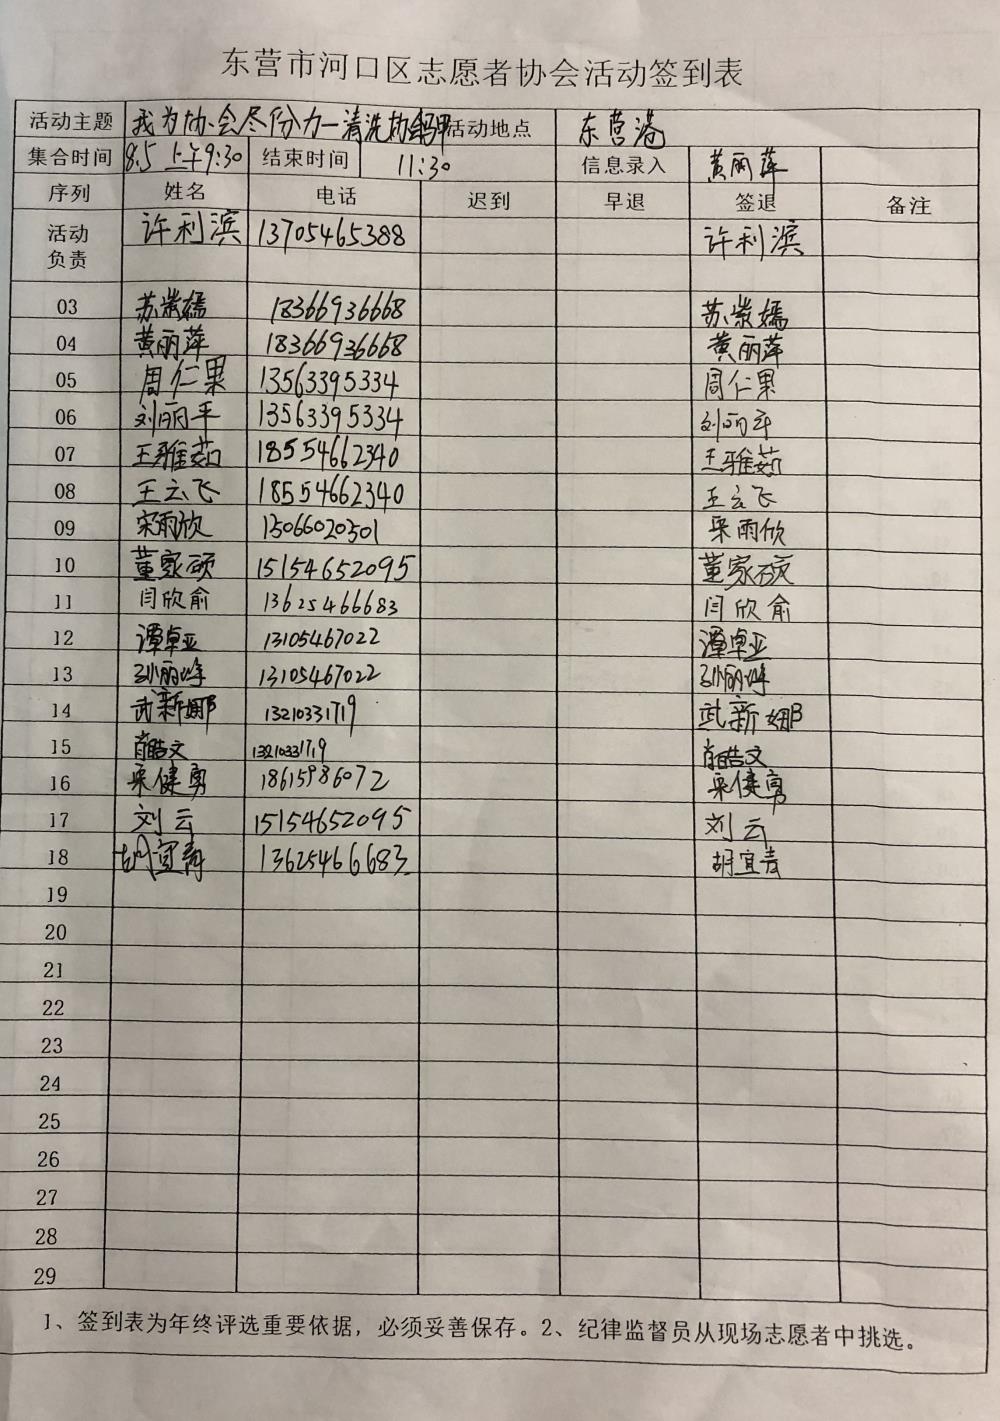 东营市河口区志愿者协会活动签到表
活动主题 我为协会尽份力—清洗协会马甲 活动地点 东营港
集合时间 8.5 上午9:30 结束时间 11:30 信息录入 黄丽萍
序列 姓名 电话 迟到 早退 签退 备注
活动负责 许利滨 13705465388 许利滨
03 苏紫嫣 18366936668 苏紫嫣
04 黄丽萍 18366936668 黄丽萍
05 周仁果 13563395334 周仁果
06 刘丽平 13563395334 刘丽平
07 王雅茹 18554662340 王雅茹
08 王云飞 18554662340 王云飞
09 宋雨欣 15066020501 宋雨欣
10 董家硕 15154652095 董家硕
11 闫欣俞 13625466683 闫欣俞
12 谭卓亚 13105467022 谭卓亚
13 孙丽婷 13105467022 孙丽婷
14 武新娜 13210331719 武新娜
15 肖皓文 13210331719 肖皓文
16 宋健勇 18615986072 宋健勇
17 刘云 15154652095 刘云
18 胡宜青 13625466683 胡宜青
19
20
21
22
23
24
25
26
27
28
29
1、签到表为年终评选重要依据，必须妥善保存。2、纪律监督员从现场志愿者中挑选。